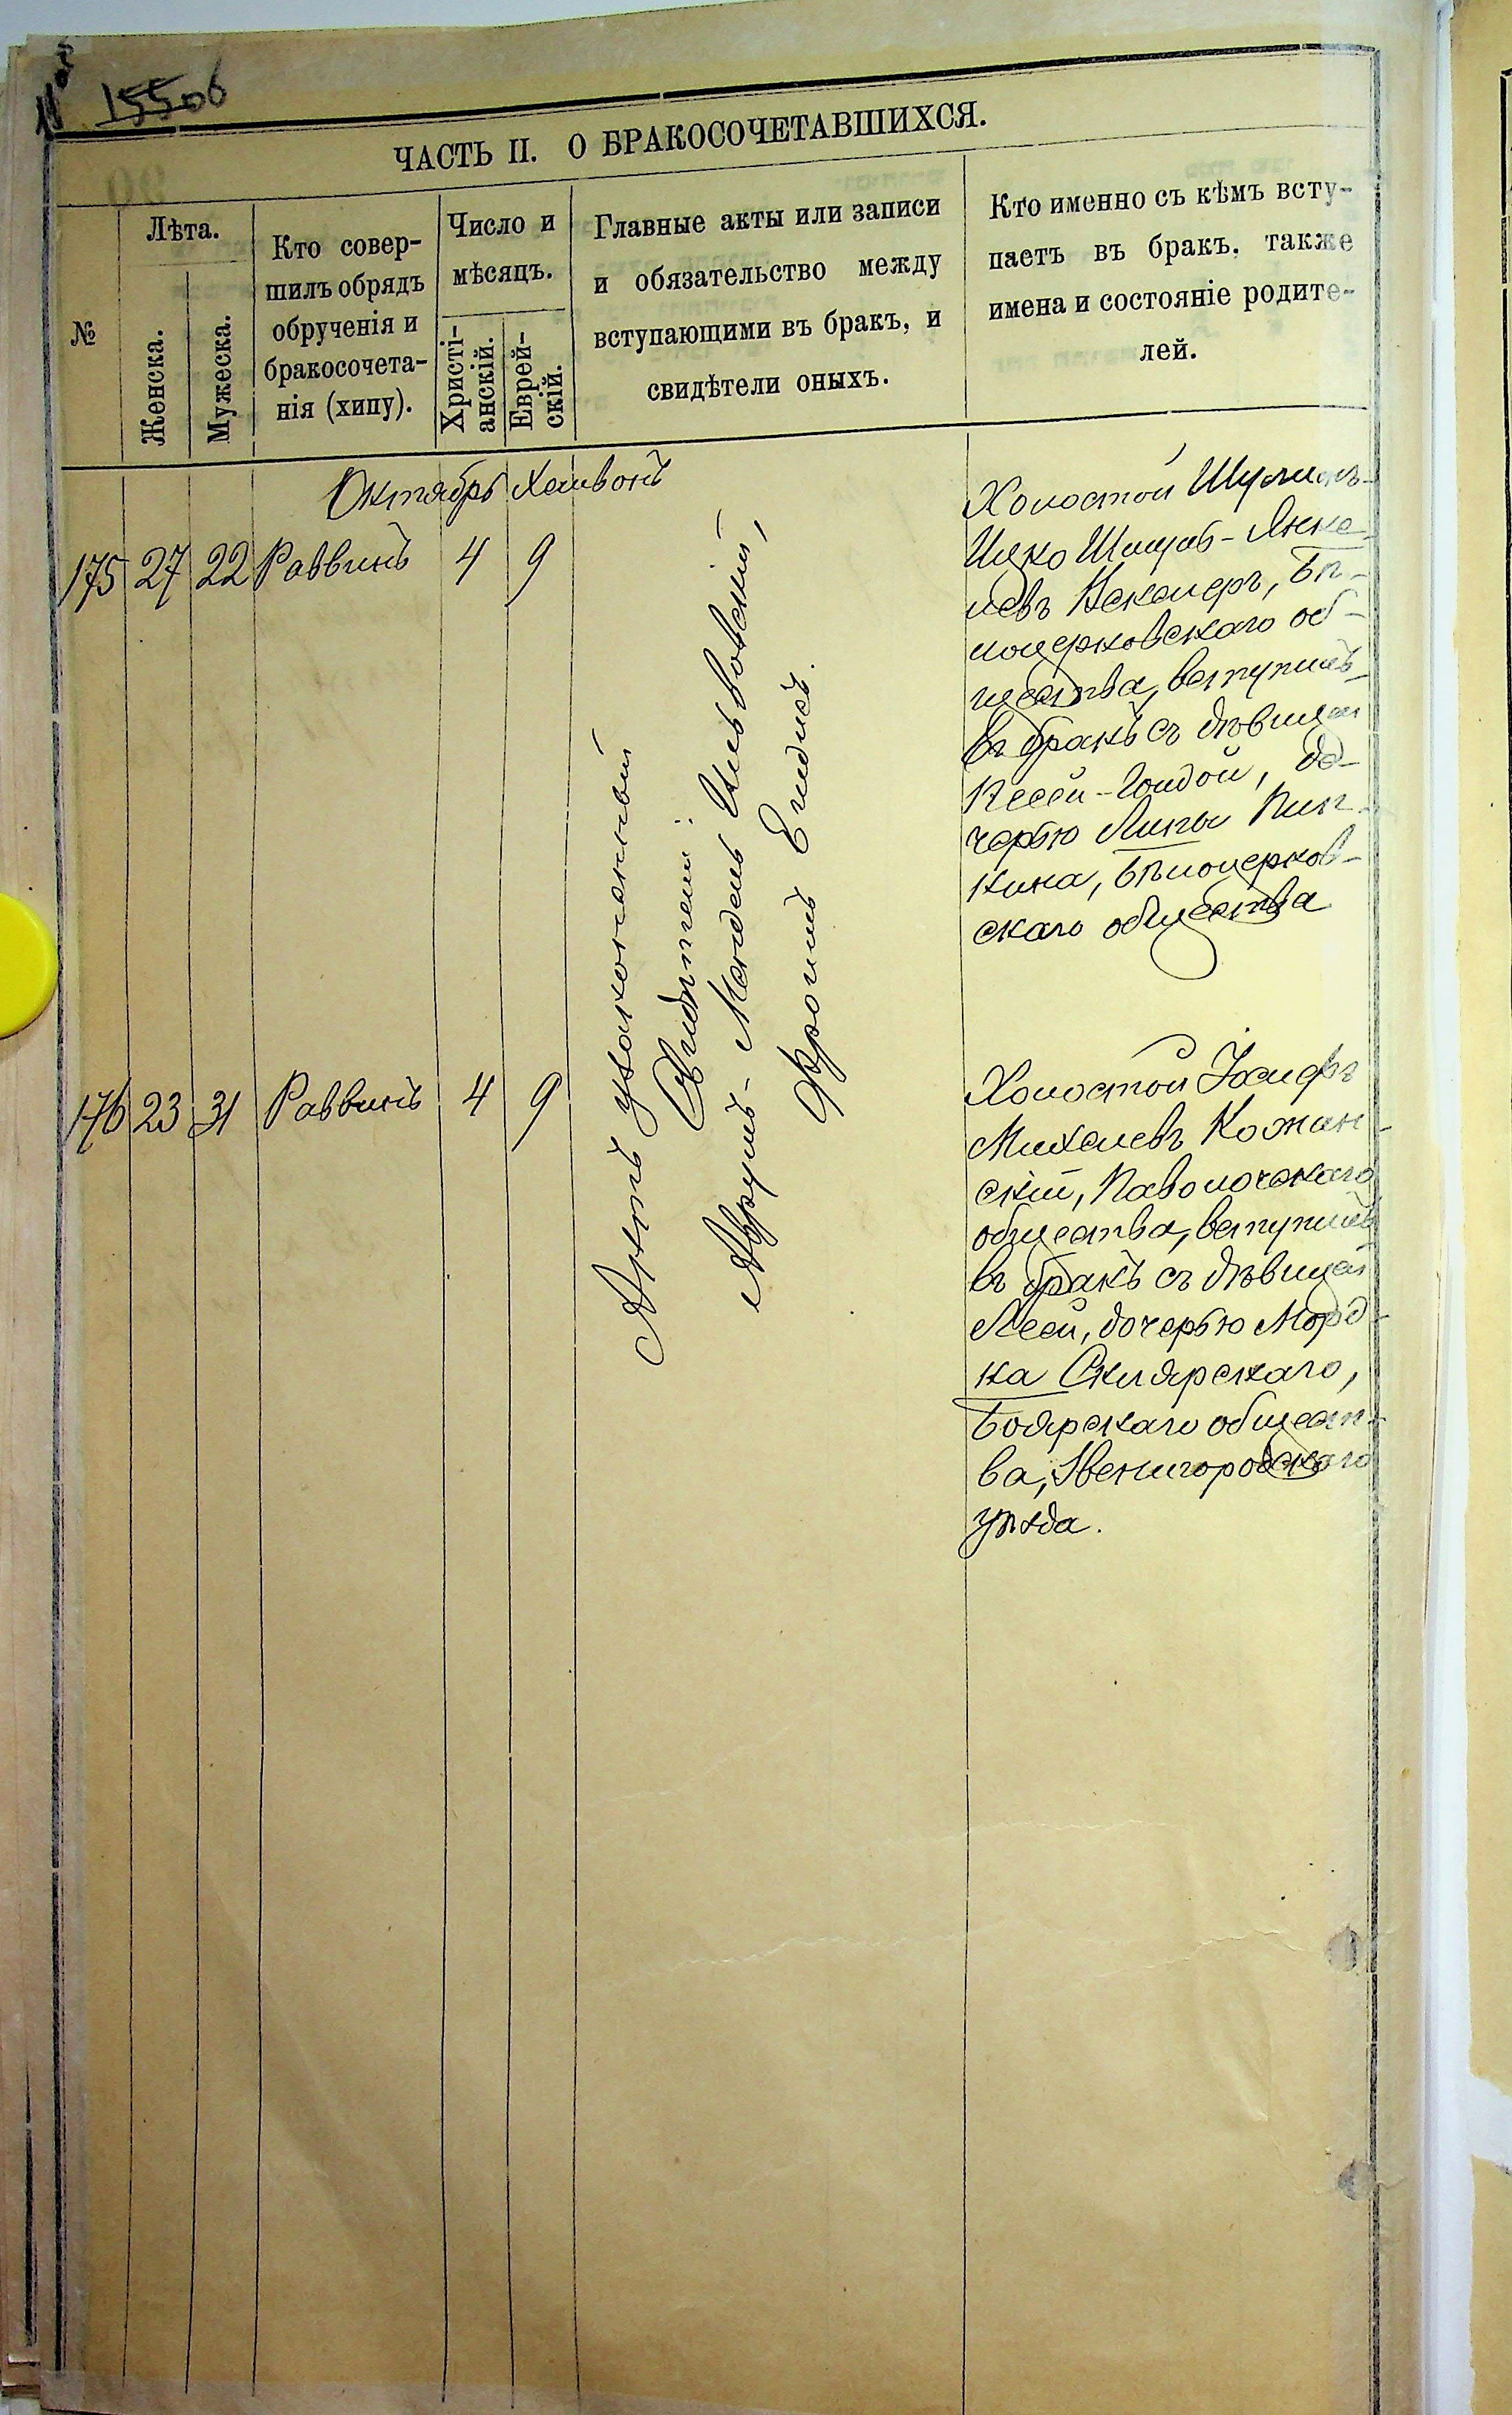 155об
ЧАСТЬ II. О БРАКОСОЧЕТАВШИХСЯ.
№
Лѣта.
Женска.
Мужеска.
Кто совер-
шилъ обрядъ
обрученія и
бракосочета-
нія (хипу).
Число и
мѣсяцъ.
Христі-
анскій.
Еврей-
скій.
Главные акты или записи
и обязательство между
вступающими въ бракъ, и
свидѣтели оныхъ.
Кто именно съ кѣмъ всту-
паетъ въ бракъ, также
имена и состояніе родите-
лей.
Октябрь Хешвонъ
175 27 22 Раввинъ 4 9
Актъ узаконенный
Свидѣтели:
Аврумъ-Мендель
Фроимъ
Холостой Шулимъ-
Ицко Янке-
левъ Бѣ-
лоцерковскаго об-
щества, вступилъ
въ бракъ съ дѣвицей
Песей-Голдой, до-
черью Липы Пин-
кина, Бѣлоцерков-
скаго общества
176 23 31 Раввинъ 4 9
Холостой Іосифъ
Михелевъ Кожан-
скій, Паволочскаго
общества, вступилъ
въ бракъ съ дѣвицей
Леей, дочерью Морд-
ка Склярскаго,
Боярскаго общест-
ва, Звенигородскаго
уѣзда.